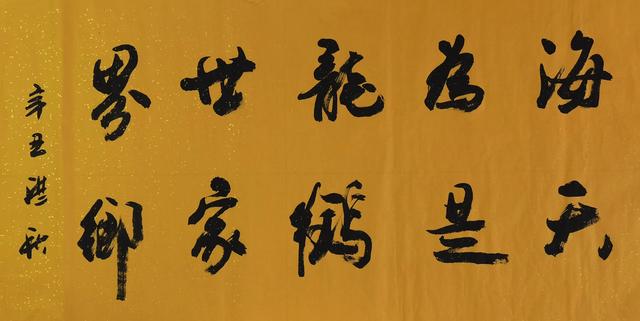 海為龍世界
天是鶴家鄉
辛丑秋